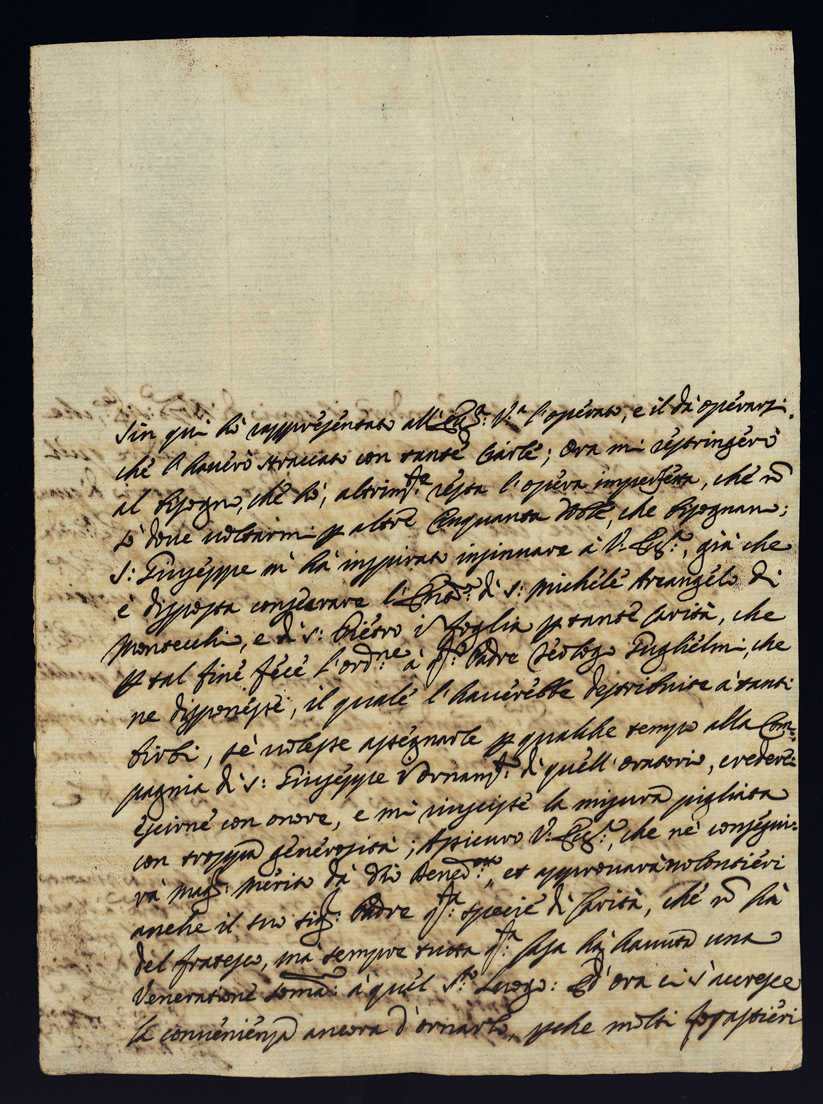 Sin qui hò rappresentato all'Ecc.ª V.ª l'operato, e il dà operarsi.
che l'haverò straccato con tante Ciarle; Ora mi restringerò
al bisogno, che hò, altrim.te resta l'opera imperfetta, che nō
sò dove voltarmi p altre Cinquanta doble, che bisognano;
S: Giuseppe m'hà inspirato insinuare à V. Ecc.ª, già che
è disposta conservare l' di S: Michele Arcangelo di
Montecchi, e di S: Pietro i Foglia p tante Carità, che
p tal fine fece l'ordne à q.to Padre Teologo Guglielmi, che
ne disponesse, il quale l'haverebbe destribuite à tanti
birbi, se volesse assegnarle p qualche tempo alla Com=
pagnia di S: Giuseppe p ornam.to di quell'oratorio, crederei
escirne con onore, e mi riuscisse la misura pigliata
con troppa generosità; Assicuro V. Ecc.ª, che ne consegui=
rà mag.r merito dà Dio Bened.tto, et approvarà volontieri
anche il suo Sig.r Padre q.ta specie di Carità, che nō hà
del fratesco, mà sempre tutta q.ta Casa hà havuta una
Veneratione somma à quel S.to Luogo: Ed ora ci s'accresce
la convenienza ancora d'ornarlo, pche molti forastieri